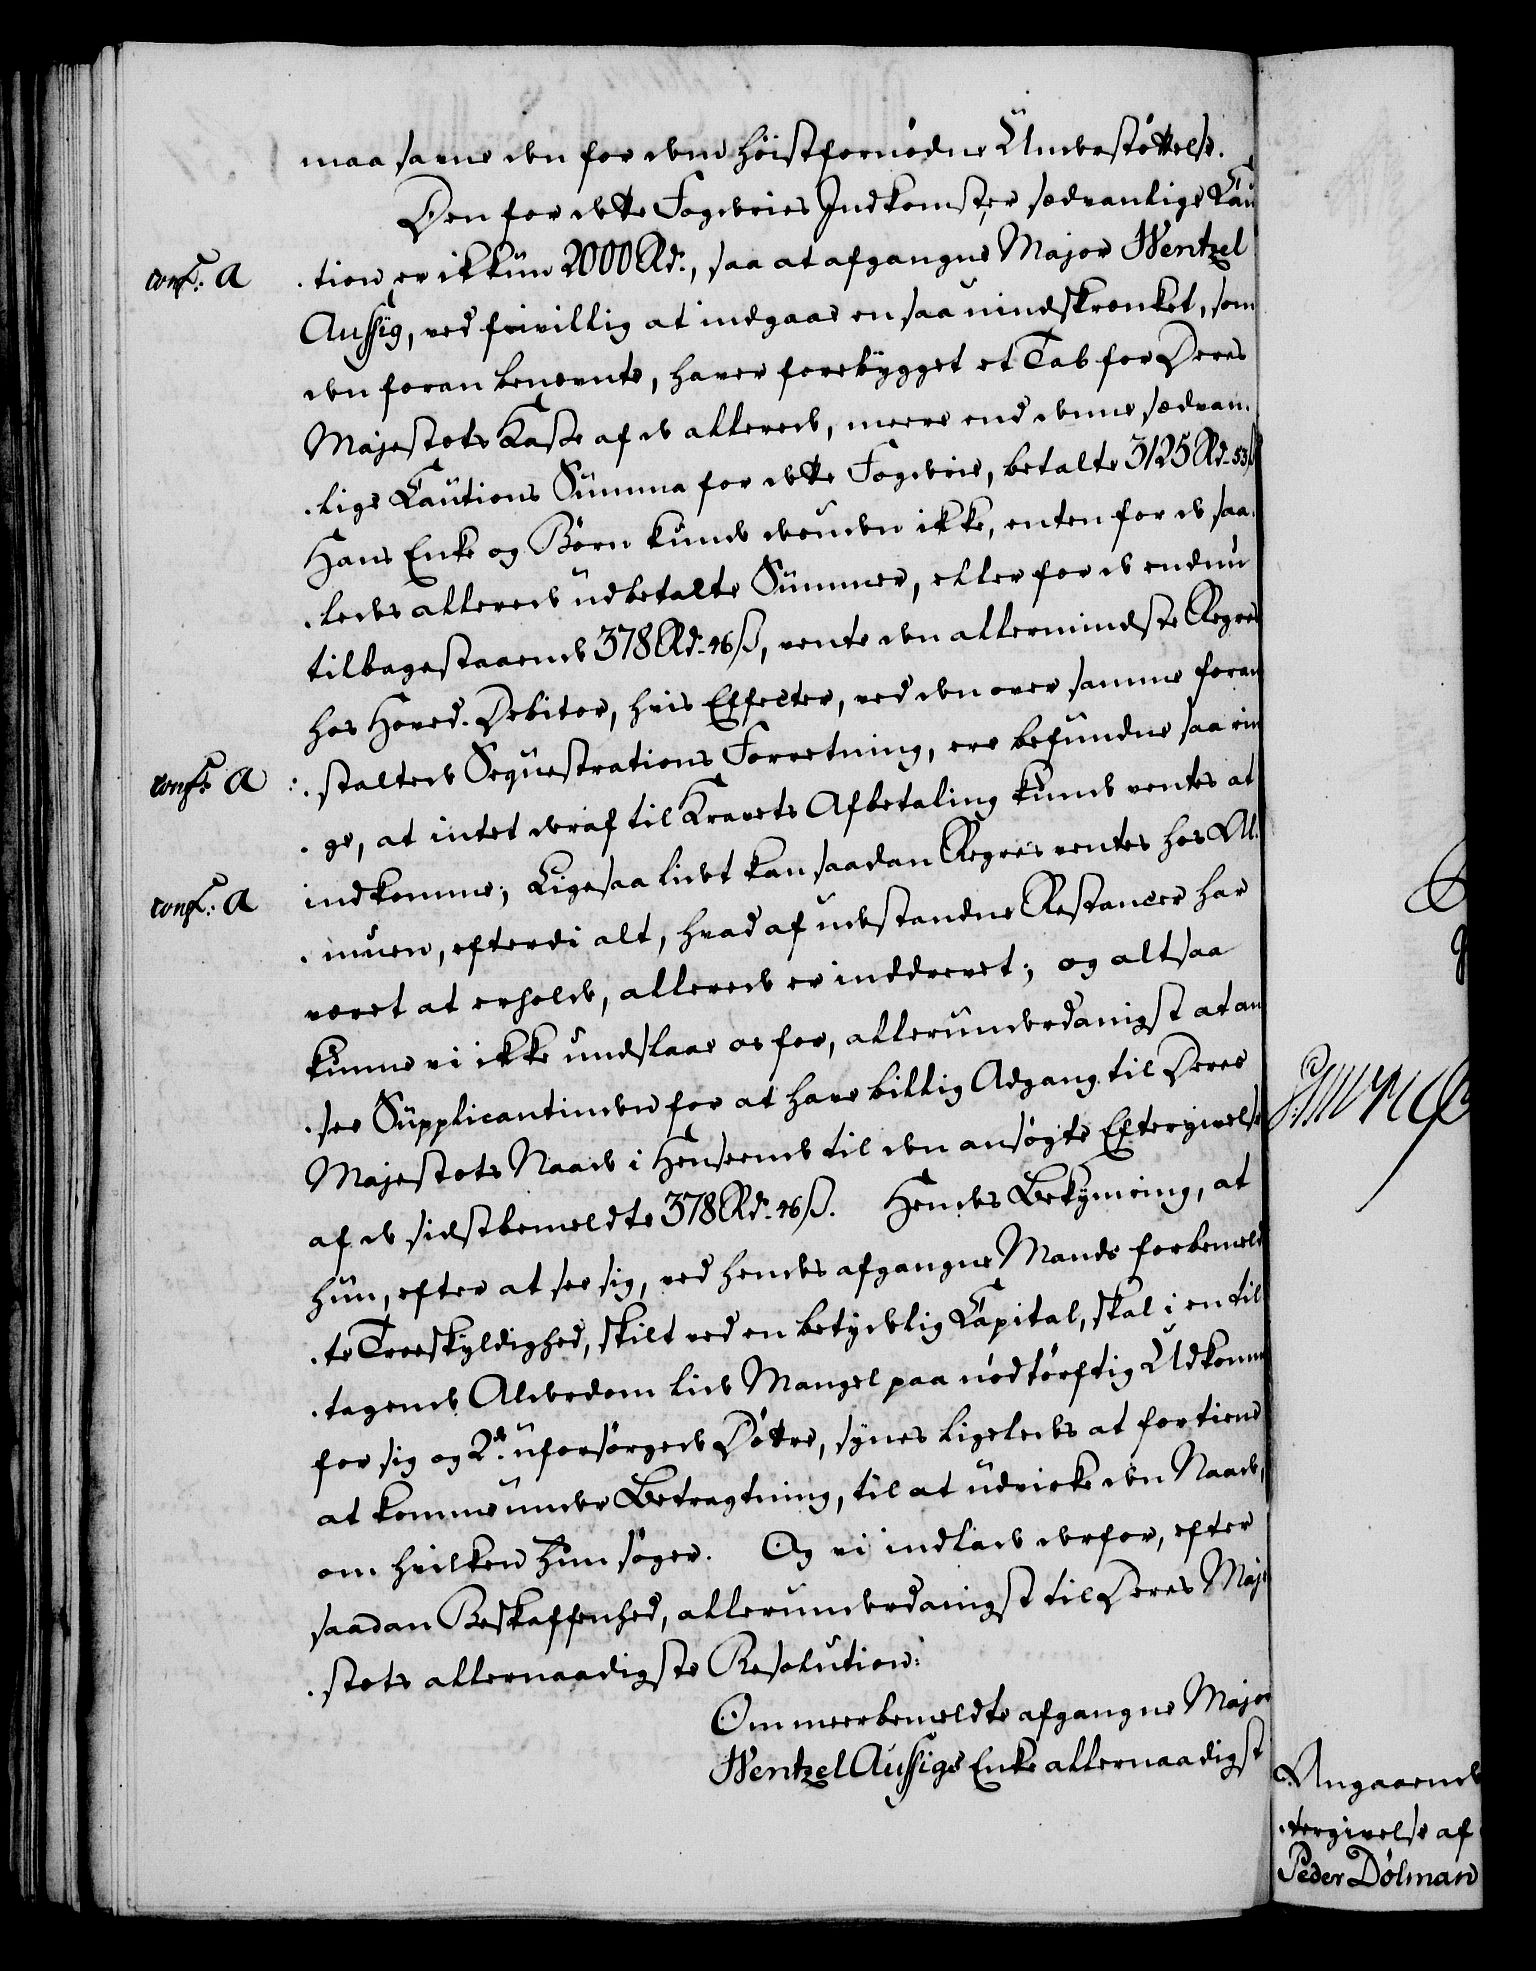 maa savne den for dem høistfornødne Understøttelse.
Den for dette Fogderies Indkomster sædvanlige Cau
conf: A
. tion er ikkun 2000 Rd:, saa at afgangne Major Wentzel
Aussig, ved frivillig at indgaae en saa uindskrenket, som
den foran benevnte, haver forebygget et Tab for Deres
Majestets Kasse af de allerede, meere end denne sædvan.
. lige Cautions Summa for dette Fogderie, betalte 3125 Rd. 53 ß
Hans Enke og Børn kunde desuden ikke, enten for de saa.
. ledes allerede udbetalte Summer, eller for de endnu
tilbagestaaende 378 Rd. 46 ß, vente den allermindste Regres
hos Hoved. Debitor, hvis Effecter, ved den over samme foran
conf: A
. staltede Sequestrations Forretning, ere befundne saa rin
. ge, at intet deraf til Kravets Afbetaling kunde ventes at
conf: A
indkomme; Ligesaa lidet kan saadan Regres ventes hos Al.
. muen, efterdi alt, hvad af udestandne Restancer har
været at erholde, allerede er inddrevet; og altsaa
kunne vi ikke undslaae os for, allerunderdanigst at an
. see Supplicantinden for at have billig Adgang til Deres
Majestets Naade i Henseende til den ansøgte Eftergivelse
af de sidstbemeldte 378 Rd. 46 ß. Hendes Bekymring, at
hun, efter at see sig, ved hendes afgangne Mands forbemeld
. te Troeskyldighed, skilt ved en betydelig Capital, skal i en til
. tagende Alderdom lide Mangel paa nødtørftig Udkomme
for sig og 2de uforsørgede Døttre, synes ligeledes at fortiene
at komme under Betragtning, til at udvirke den Naade,
om hvilken hun søger. Og vi indlade derfor, efter
saadan Beskaffenhed, allerunderdanigst til Deres Maje
. stets allernaadigste Resolution:
Om meerbemeldte afgangne Major
Wentzel Aussigs Enke allernaadigst
Angaaende
. tergivelse af
Peder Dolman